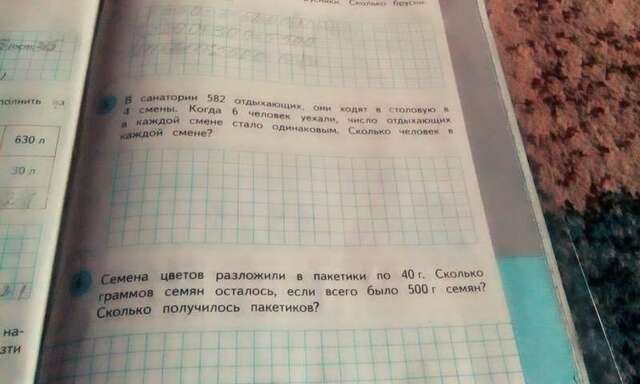 Сколько
полнить
630 л
30 л
В санатории 582 отдыхающих, они ходят в столовую в
4 смены. Когда 6 человек уехали, число отдыхающих
в каждой смене стало одинаковым. Сколько человек в
каждой смене?
Семена цветов разложили в пакетики по 40 г. Сколько
граммов семян осталось, если всего было 500 г семян?
Сколько получилось пакетиков?
на-
зти